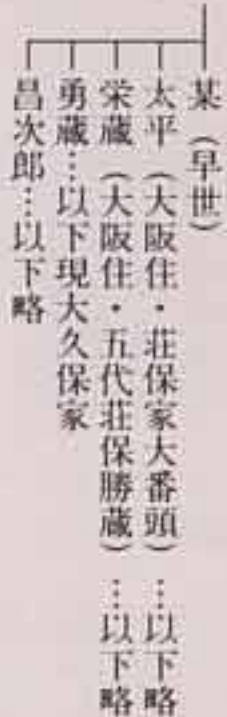 某（早世）
太平（大阪住・荘保家大番頭）…以下略
栄蔵（大阪住・五代荘保勝蔵）…以下略
勇蔵…以下現大久保家
昌次郎…以下略